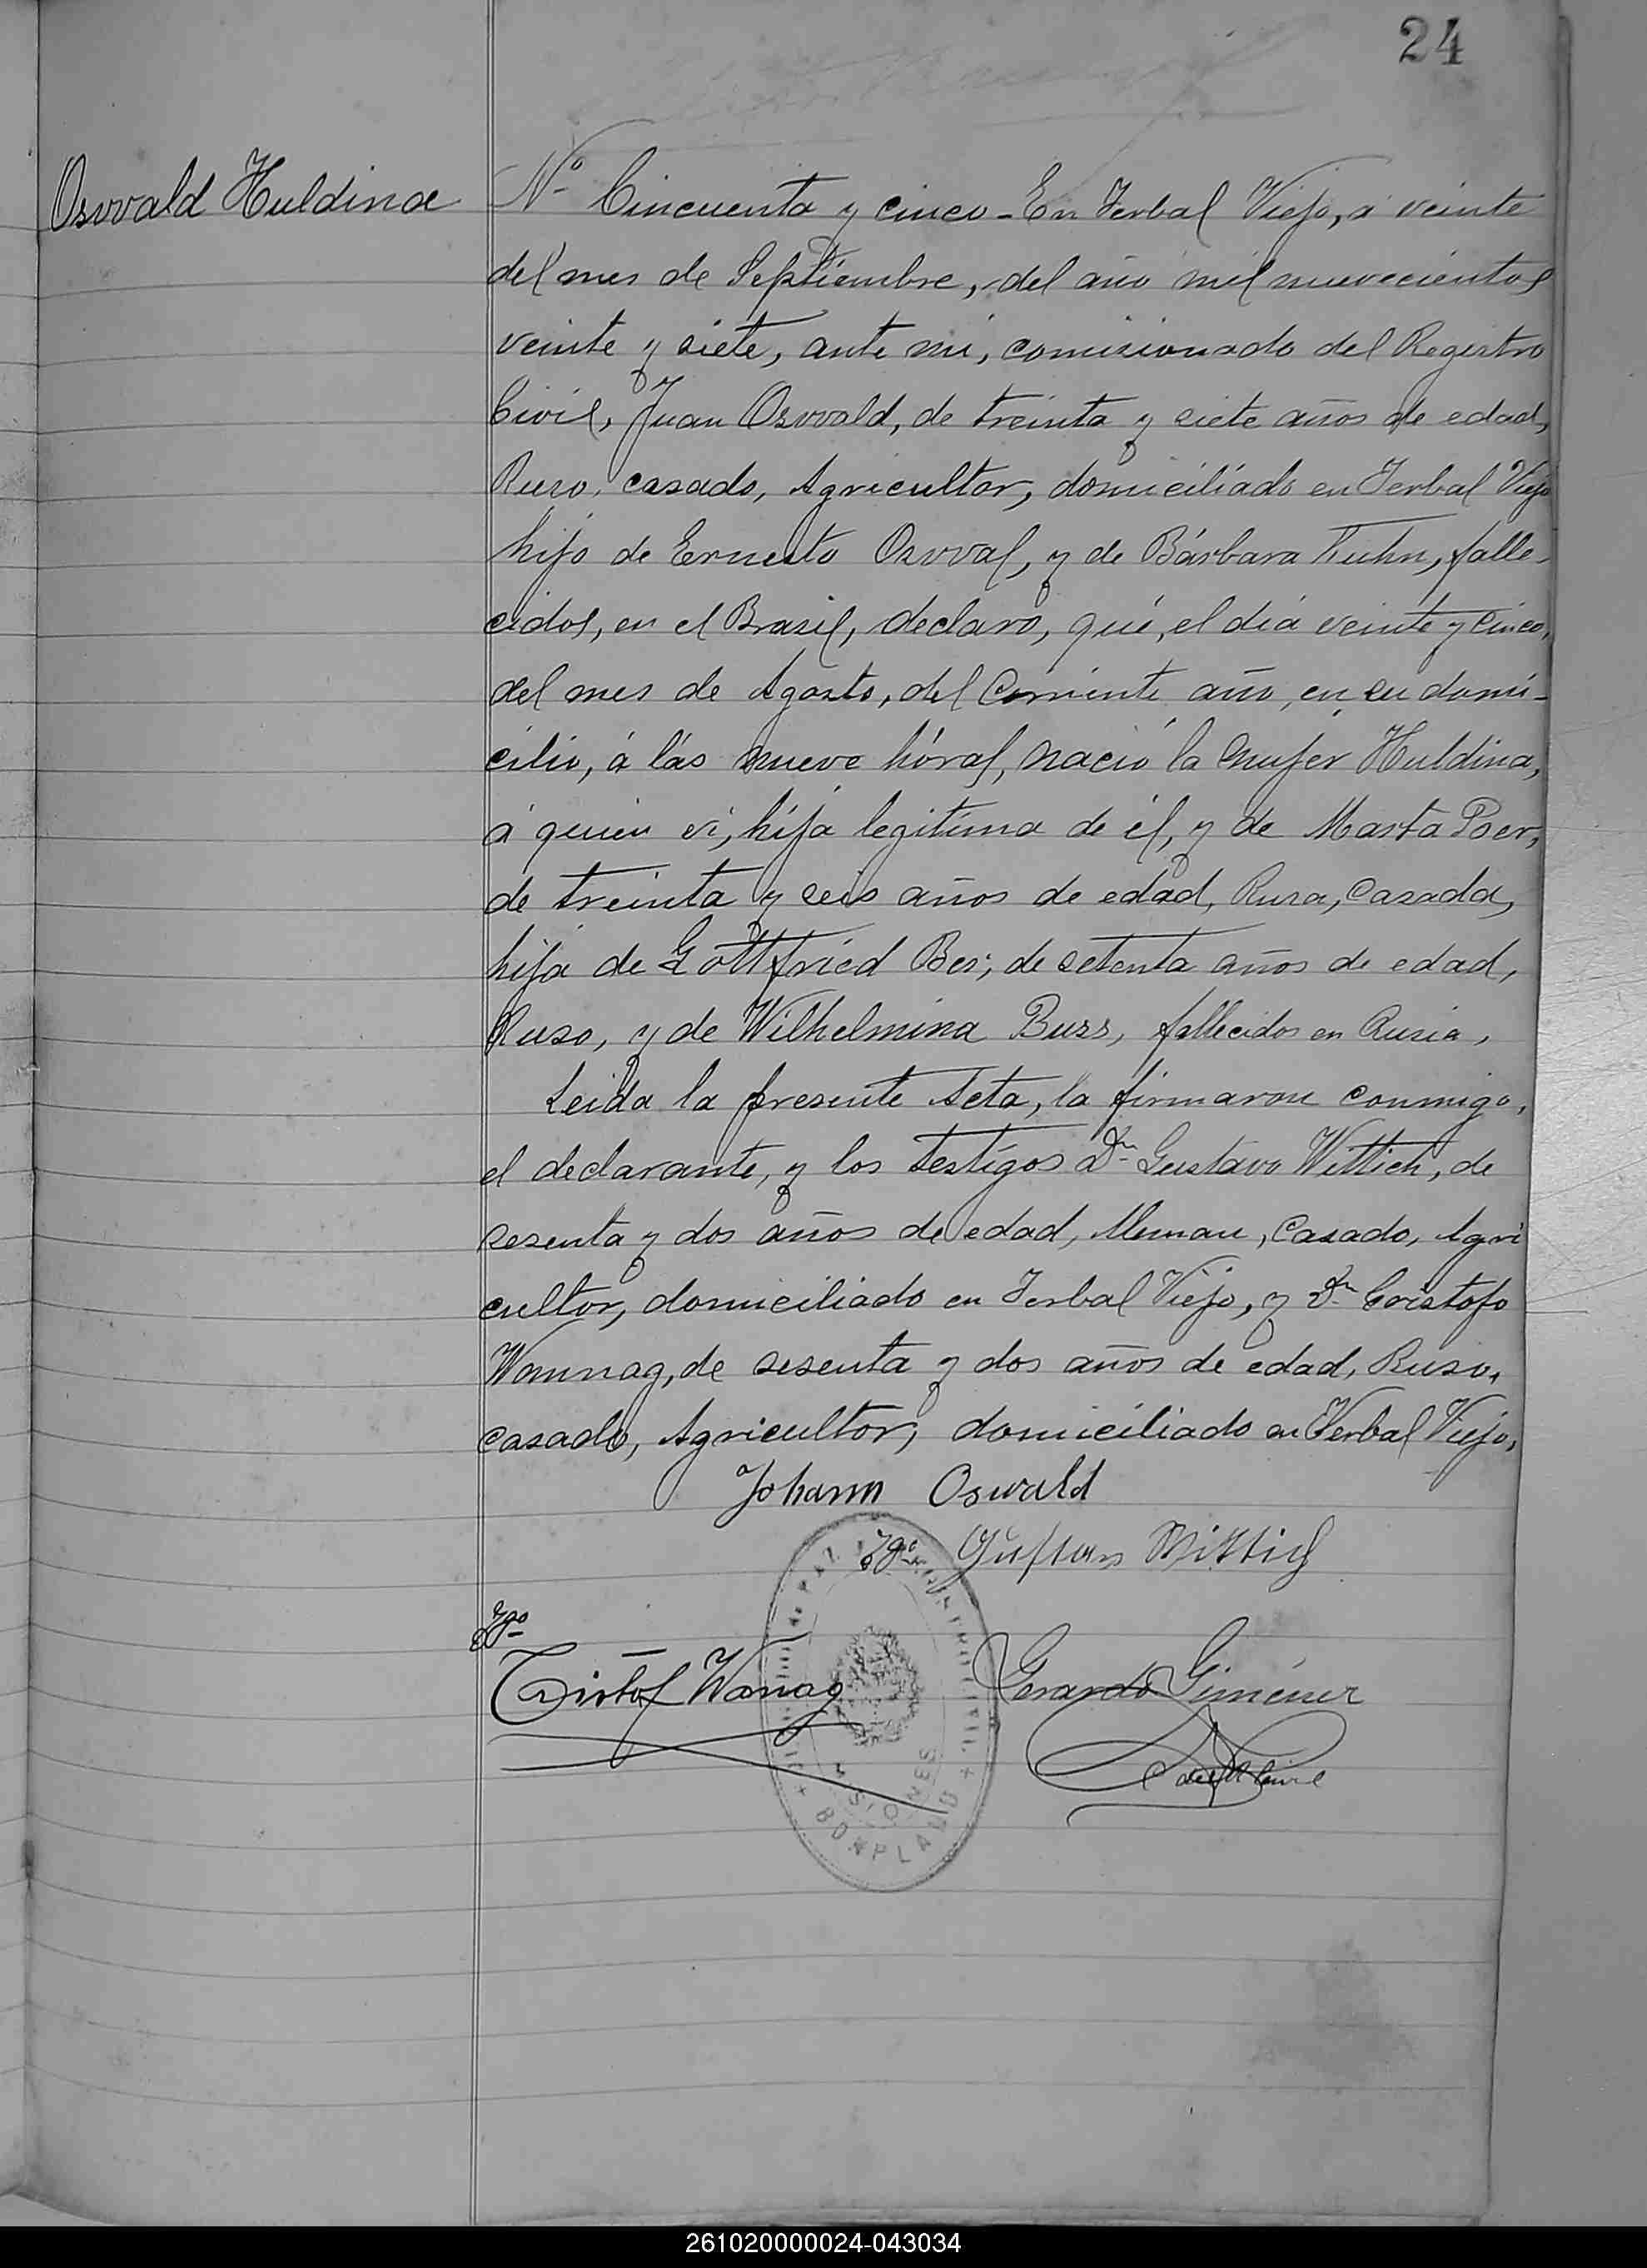 24
Osvvald Huldina
Nº Cincuenta y cinco - En Yerbal Viejo, á veinte
del mes de Septiembre, del año mil nuevecientos
veinte y siete, ante mi, comisionado del Registro
Civil, Juan Osvvald, de treinta y siete años de edad,
Ruso, casado, Agricultor, domiciliado en Yerbal Viejo
hijo de Ernesto Osvval, y de Bárbara Kuhn, falle-
cidos, en el Brasil, declaro, qué, el día veinte y cinco,
del mes de Agosto, del Corriente año, en su domi-
cilio, á lás nueve hóras, nació la mujer Huldina,
á quien vi, hija legitima de él, y de Marta Poer,
de treinta y seis años de edad, Rusa, casada,
hija de Gottfried Ber, de setenta años de edad,
Ruso, y de Wilhelmina Buss, fallecidos en Rusia,
Leida la presente Acta, la firmaron conmigo,
el declarante, y los testigos Dn Gustavo Wittich, de
sesenta y dos años de edad, Aleman, Casado, Agri
cultor, domiciliado en Yerbal Viejo, y Dn Cristofo
Wannag, de sesenta y dos años de edad, Ruso,
casado, Agricultor, domiciliado en Yerbal Viejo,
Johann Oswald
Tgo Gustav Wittich
Tgo
Cristof Wanag Gerardo Giménez
MISIONES
+ BONPLAND +
261020000024-043034